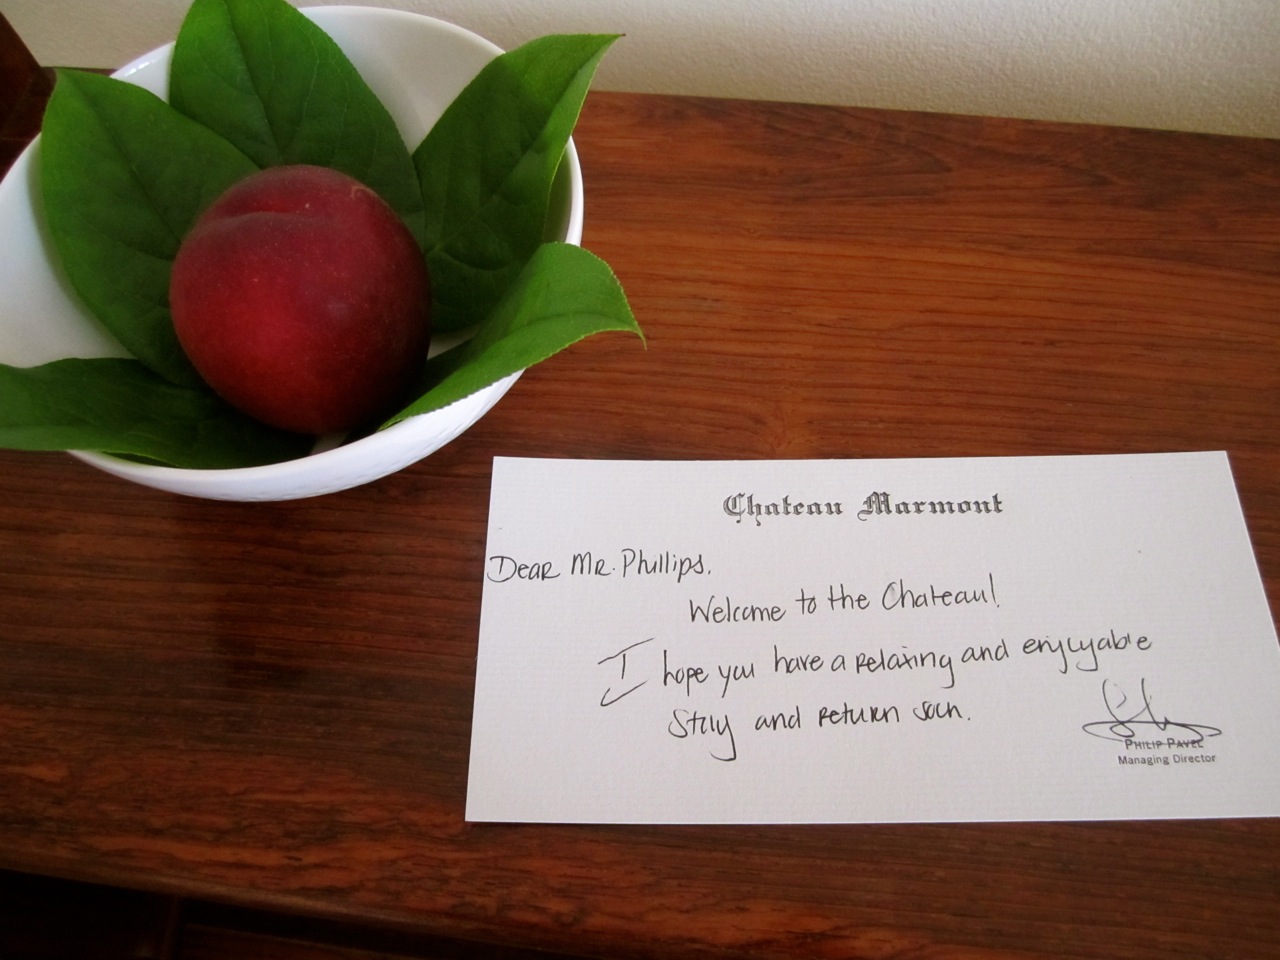 Chateau Marmont
Dear Mr. Phillips,
Welcome to the Chateau!
I hope you have a relaxing and enjoyable
stay and return soon.
PHILIP PAVEL
Managing Director